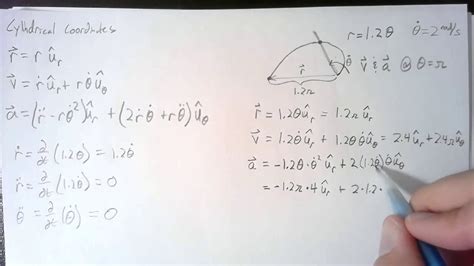 Cylindrical Coordinates
r⃗ = r û_r
v⃗ = ṙ û_r + r θ̇ û_θ
a⃗ = (r̈ - rθ̇²)û_r + (2ṙθ̇ + rθ̈)û_θ
ṙ = ∂/∂t (1.2θ) = 1.2θ̇
r̈ = ∂/∂t (1.2θ̇) = 0
θ̈ = ∂/∂t (θ̇) = 0
r = 1.2θ θ̇ = 2 rad/s
r⃗ θ̇
1.2π
v⃗ & a⃗ @ θ = π
r⃗ = 1.2θ û_r = 1.2π û_r
v⃗ = 1.2θ̇ û_r + 1.2θ θ̇ û_θ = 2.4 û_r + 2.4π û_θ
a⃗ = -1.2θ·θ̇² û_r + 2(1.2θ̇)θ̇ û_θ
= -1.2π·4 û_r + 2·1.2·